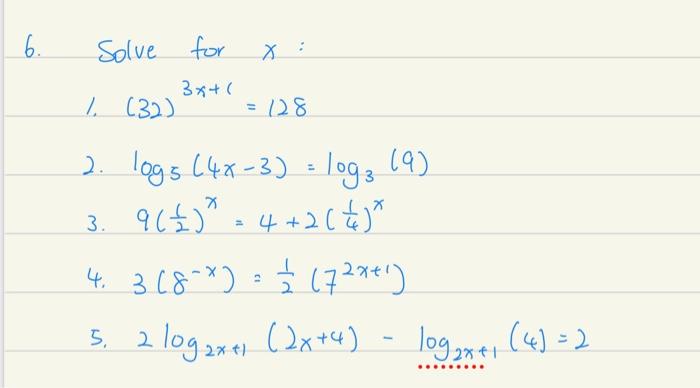 6. Solve for x :
1. (32)^{3x+1} = 128
2. log₅ (4x-3) = log₃ (9)
3. 9(1/2)^x = 4 + 2(1/4)^x
4. 3(8^{-x}) = 1/2 (7^{2x+1})
5. 2 log_{2x+1} (2x+4) - log_{2x+1} (4) = 2